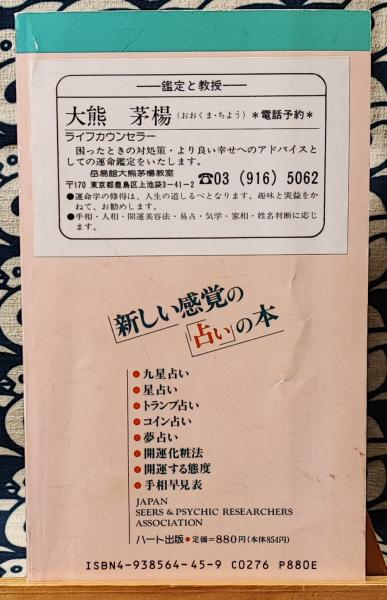 鑑定と教授
大熊 茅楊(おおくま・ちよう)*電話予約*
ライフカウンセラー
困ったときの対処策・より良い幸せへのアドバイスと
しての運命鑑定をいたします。
岳易館大熊茅楊教室
〒170 東京都豊島区上池袋3-41-2 ☎03(916)5062
●運命学の修得は、人生の道しるべとなります。趣味と実益をか
ねて、お勧めします。
●手相・人相・開運美容法・易占・気学・家相・姓名判断に応じ
ます。
新しい感覚の
占いの本
●九星占い
●星占い
●トランプ占い
●コイン占い
●夢占い
●開運化粧法
●開運する態度
●手相早見表
JAPAN
SEERS & PSYCHIC RESEARCHERS
ASSOCIATION
ハート出版 ●定価=880円(本体854円)
ISBN4-938564-45-9 C0276 P880E